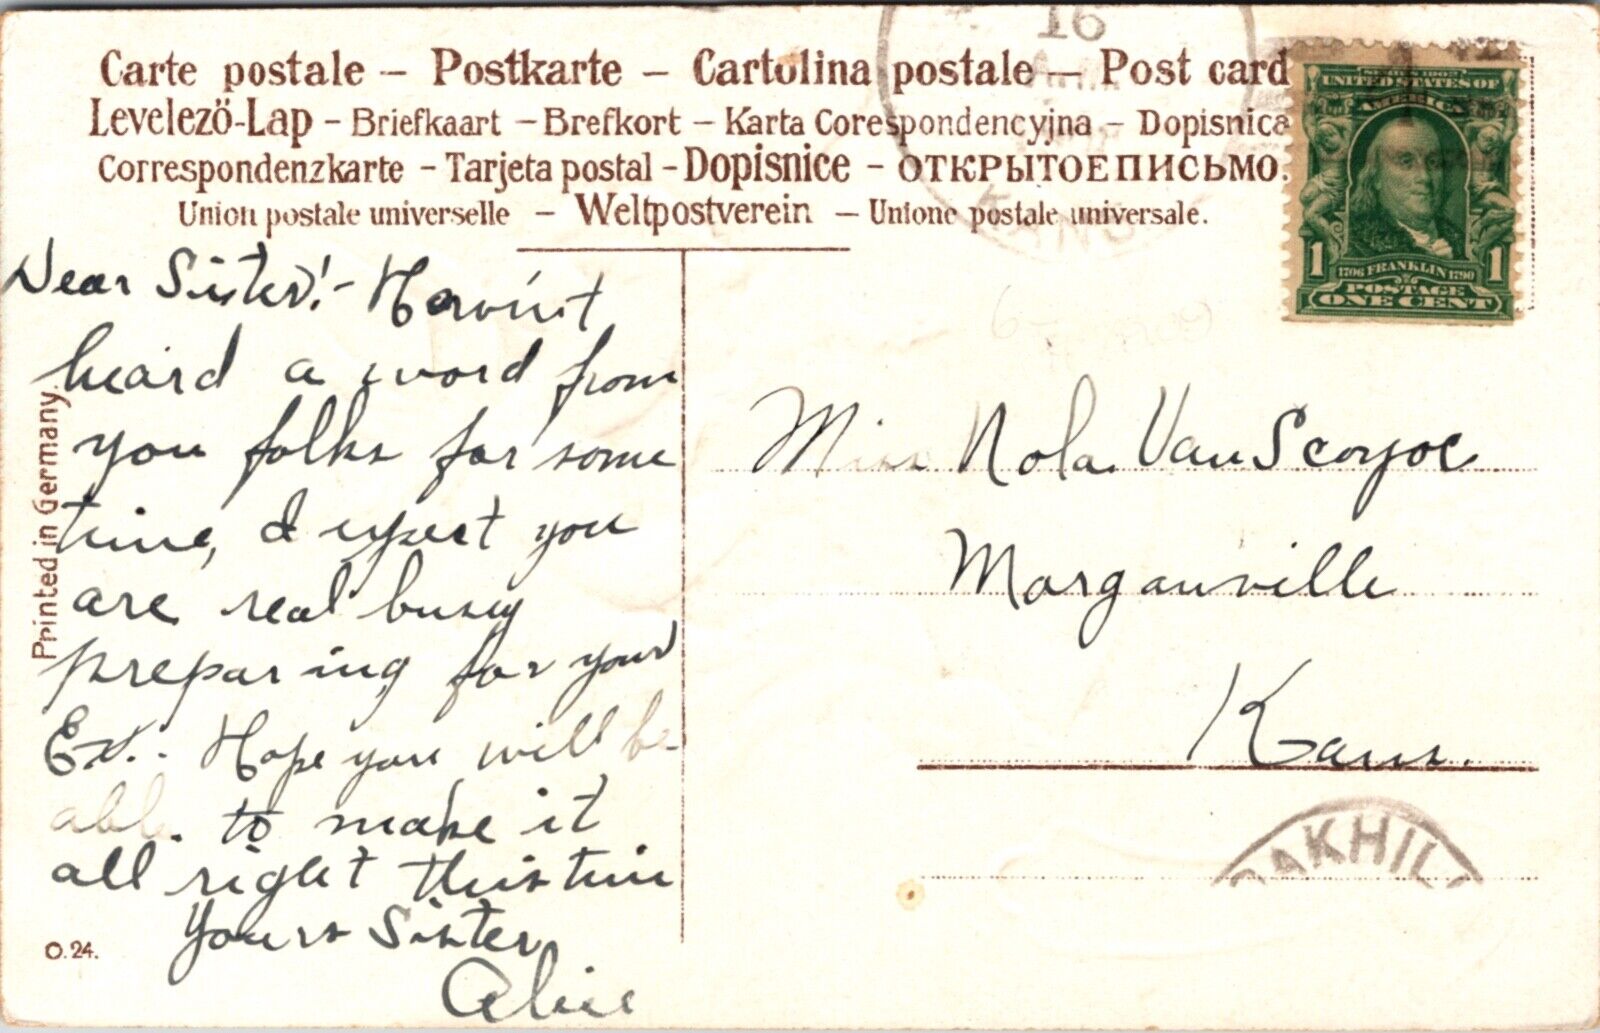 Carte postale – Postkarte – Cartolina postale – Post card
Levelező-Lap – Briefkaart – Brefkort – Karta Corespondencyjna – Dopisnica
Correspondenzkarte – Tarjeta postal – Dopisnice – ОТКРЫТОЕ ПИСЬМО.
Union postale universelle – Weltpostverein – Unione postale universale.
16
KANS
SERIES 1902
UNITED STATES OF
AMERICA
1 1706 FRANKLIN 1790 1
POSTAGE
ONE CENT
Dear Sister!- Haven't
heard a word from
you folks for some
time, I expect you
are real busy
preparing for your
Ex.. Hope you will be
able. to make it
all right this time
Yours Sister
Alice
Miss Nola VanScoyoc
Morganville
Kans.
OAKHILL
Printed in Germany
O.24.